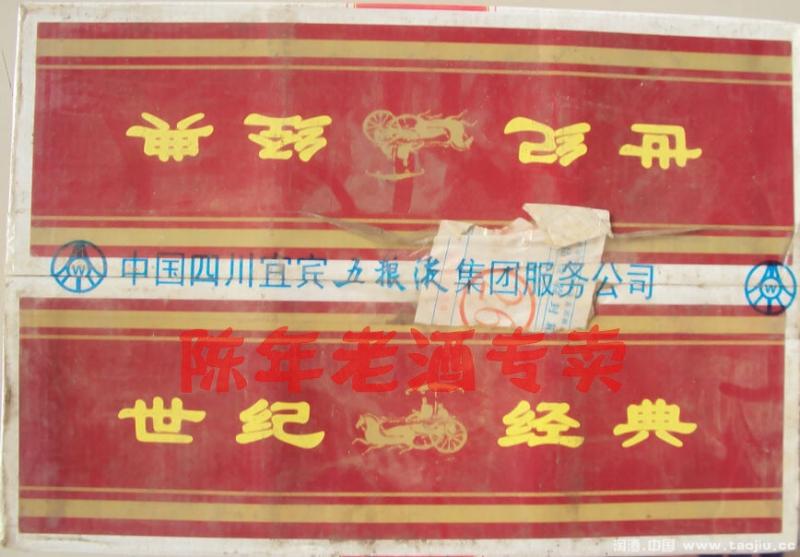 世纪 经典
中国四川宜宾五粮液集团服务公司
W
W
26
陈年老酒专卖
世纪 经典
润酒.中国 www.taojiu.cc